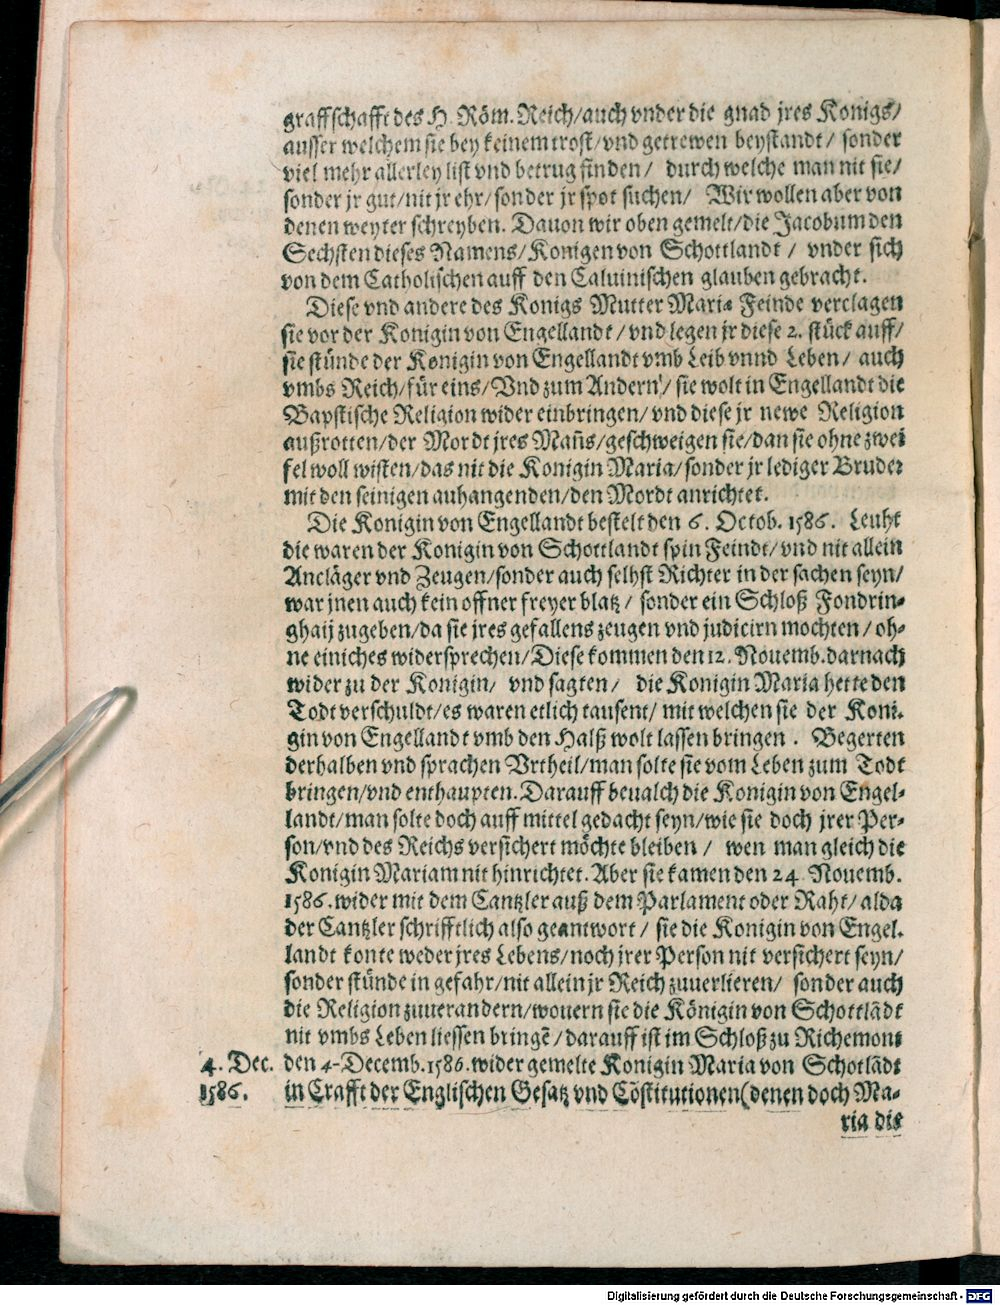 graffschafft des H. Röm. Reich/auch vnder die gnad jres Konigs/
ausser welchem sie bey keinem trost/vnd getrewen beystandt/ sonder
viel mehr allerley list vnd betrug finden/ durch welche man nit sie/
sonder jr gut/nit jr ehr/sonder jr spot suchen/ Wir wollen aber von
denen weyter schreyben. Dauon wir oben gemelt/die Jacobum den
Sechsten dieses Namens/Konigen von Schottlandt/ vnder sich
von dem Catholischen auff den Caluinischen glauben gebracht.
Diese vnd andere des Konigs Mutter Maria Feinde verclagen
sie vor der Konigin von Engellandt/vnd legen jr diese 2. stück auff/
sie stünde der Konigin von Engellandt vmb Leib vnnd Leben/ auch
vmbs Reich/für eins/Vnd zum Andern/sie wolt in Engellandt die
Bapstische Religion wider einbringen/vnd diese jr newe Religion
außrotten/der Mordt jres Mañs/geschweigen sie/dan sie ohne zwei
fel woll wisten/das nit die Konigin Maria/sonder jr lediger Bruder
mit den seinigen auhangenden/den Mordt anrichtet.
Die Konigin von Engellandt bestelt den 6. Octob. 1586. Leuht
die waren der Konigin von Schottlandt spin Feindt/vnd nit allein
Ancläger vnd Zeugen/sonder auch selbst Richter in der sachen seyn/
war jnen auch kein offner freyer blatz/ sonder ein Schloß Fondrin-
ghaij zugeben/da sie jres gefallens zeugen vnd judicirn mochten/oh-
ne einiches widersprechen/Diese kommen den 12. Nouemb. darnach
wider zu der Konigin/ vnd sagten/ die Konigin Maria hette den
Todt verschuldt/es waren etlich tausent/ mit welchen sie der Koni-
gin von Engellandt vmb den Halß wolt lassen bringen. Begerten
derhalben vnd sprachen Vrtheil/man solte sie vom Leben zum Todt
bringen/vnd enthaupten. Darauff beualch die Konigin von Engel-
landt/man solte doch auff mittel gedacht seyn/wie sie doch jrer Per-
son/vnd des Reichs versichert möchte bleiben/ wen man gleich die
Konigin Mariam nit hinrichtet. Aber sie kamen den 24 Nouemb.
1586. wider mit dem Cantzler auß dem Parlament oder Raht/alda
der Cantzler schrifftlich also geantwort/ sie die Konigin von Engel-
landt konte weder jres Lebens/noch jrer Person nit versichert seyn/
sonder stünde in gefahr/nit allein jr Reich zuuerlieren/ sonder auch
die Religion zuuerandern/wouern sie die Königin von Schottlãdt
nit vmbs Leben liessen bringẽ/darauff ist im Schloß zu Richemont
4. Dec. den 4. Decemb. 1586. wider gemelte Konigin Maria von Schotlãdt
1586. in Crafft der Englischen Gesatz vnd Cõstitutionen(denen doch Ma-
ria die
Digitalisierung gefördert durch die Deutsche Forschungsgemeinschaft - DFG